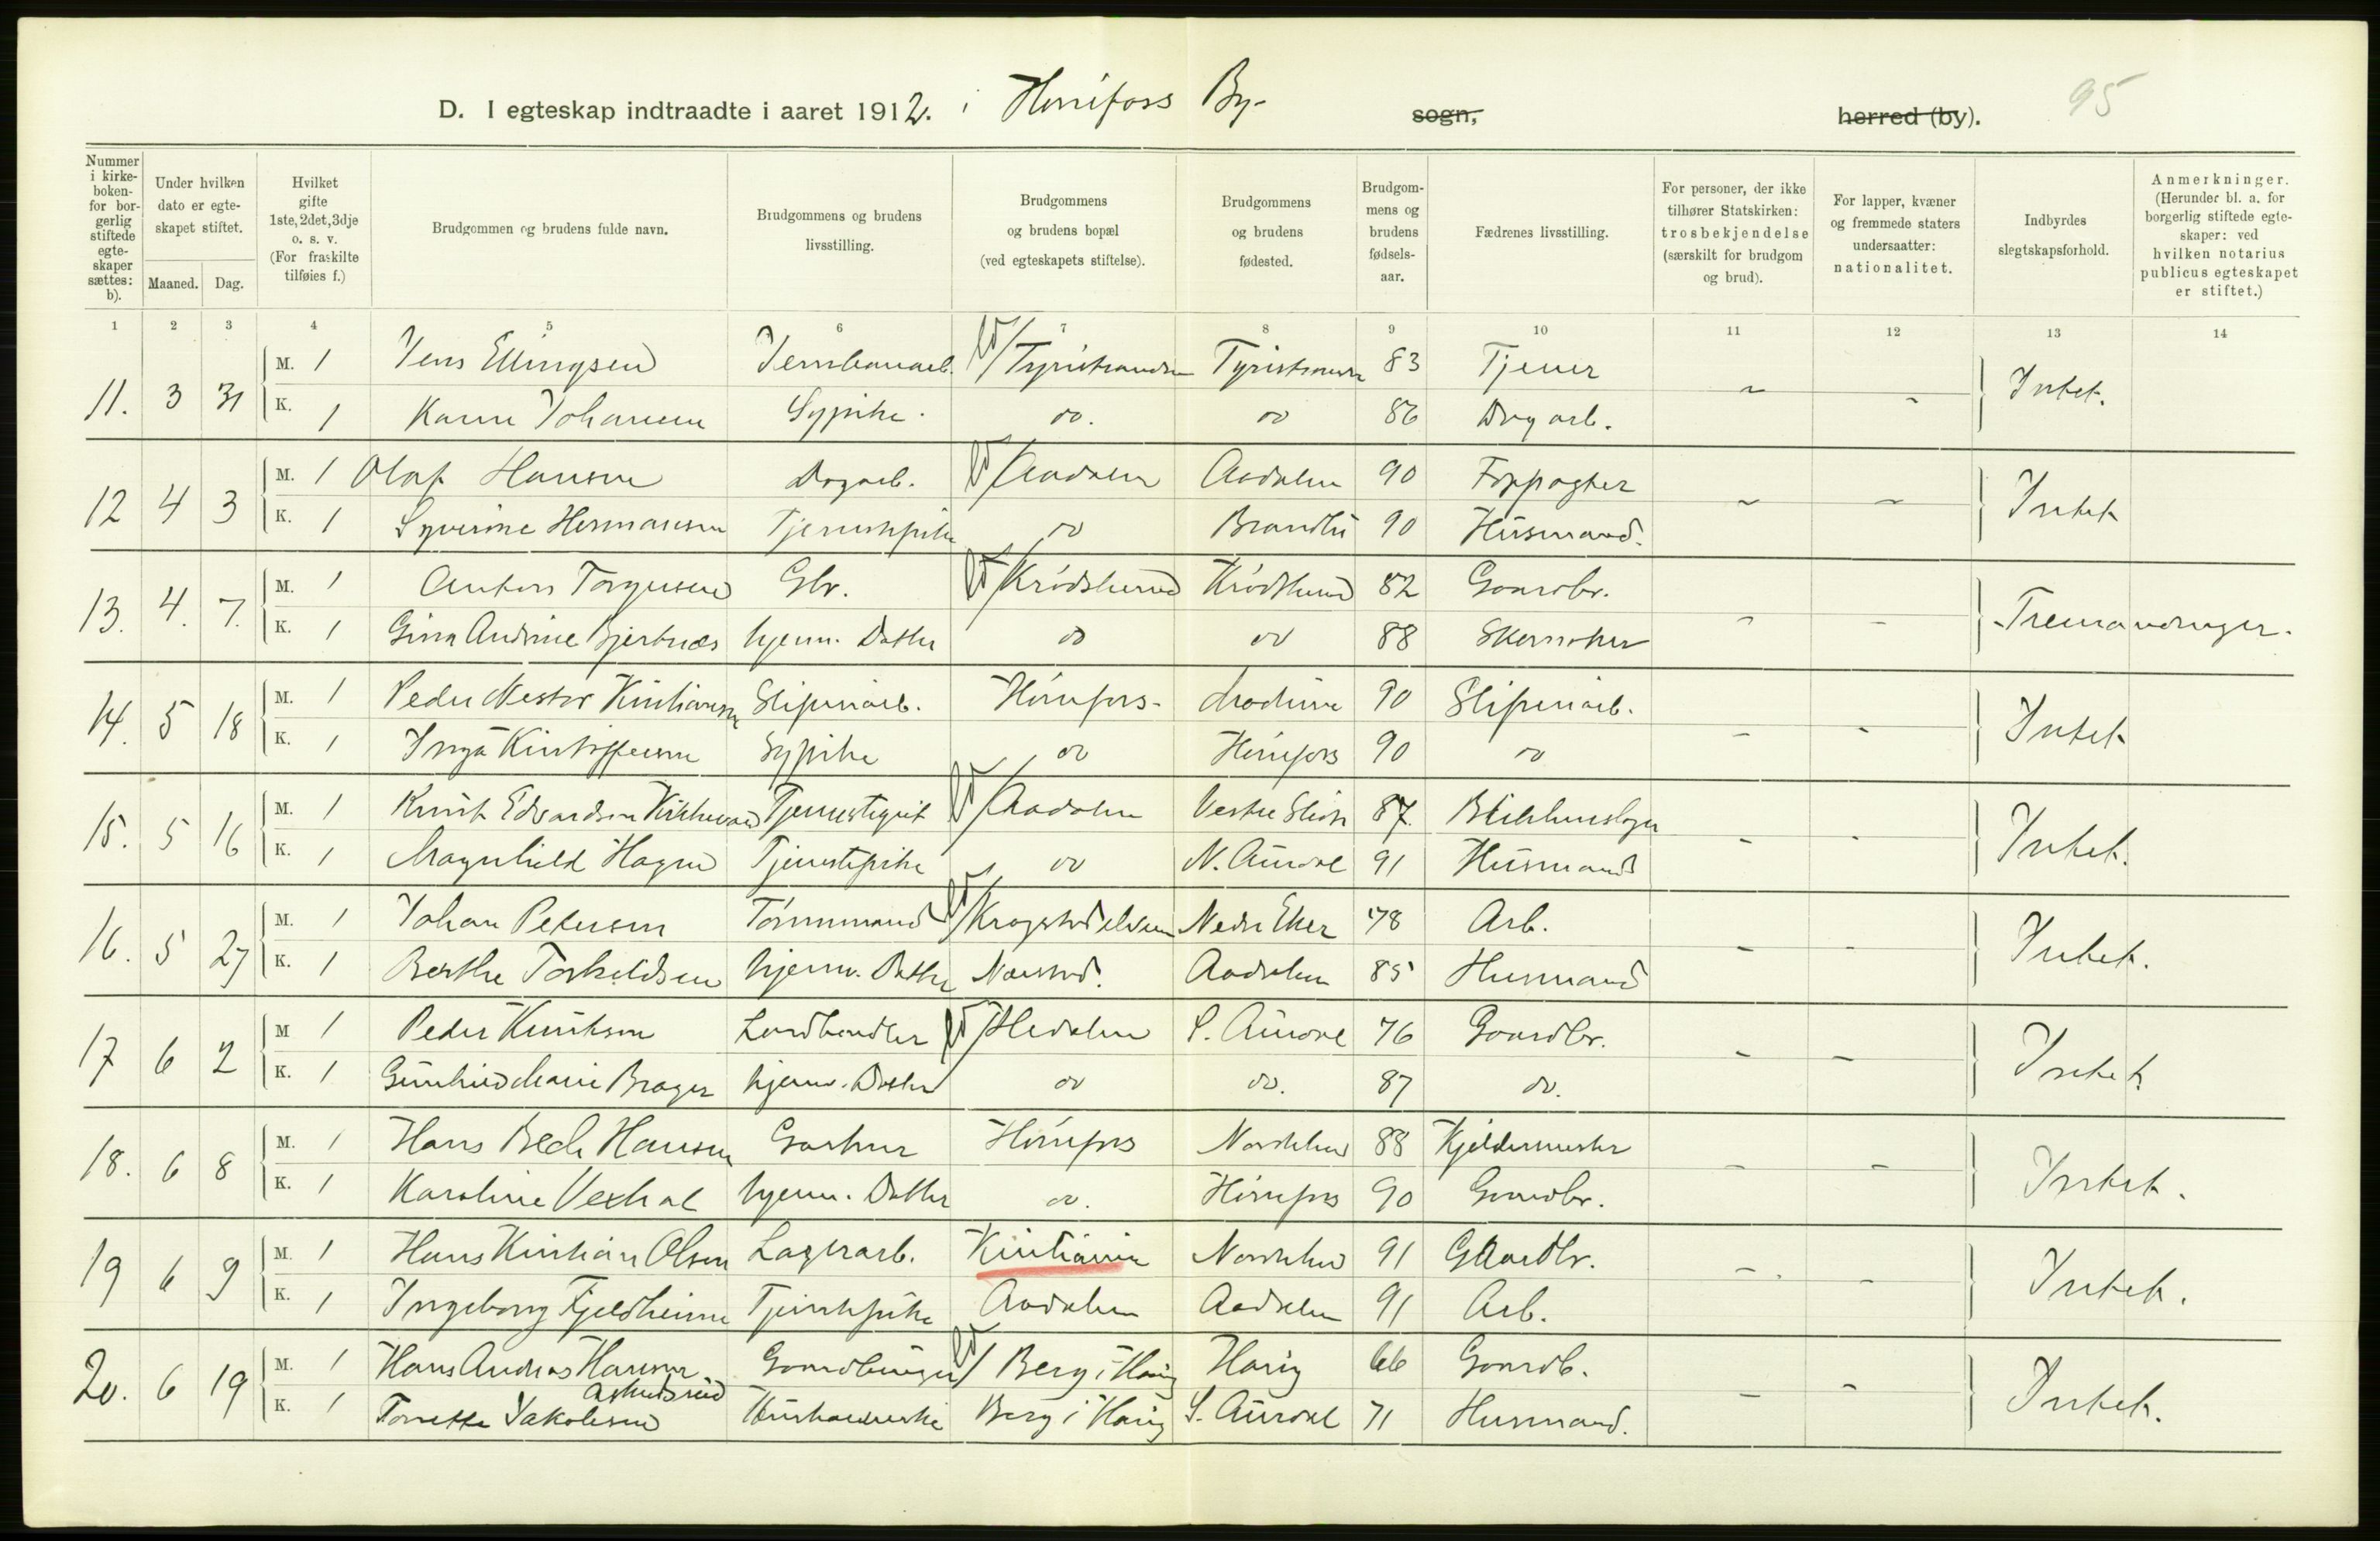 D. I egteskap indtraadte i aaret 1912. i Hønefoss By- sogn, herred (by). 95
Nummer i kirkeboken- for borgerlig stiftede egteskaper sættes: b).
Under hvilken dato er egteskapet stiftet.
Maaned. Dag.
Hvilket gifte 1ste, 2det, 3dje o. s. v. (For fraskilte tilføies f.)
Brudgommen og brudens fulde navn.
Brudgommens og brudens livsstilling.
Brudgommens og brudens bopæl (ved egteskapets stiftelse).
Brudgommens og brudens fødested.
Brudgommens og brudens fødselsaar.
Fædrenes livsstilling.
For personer, der ikke tilhører Statskirken: trosbekjendelse (særskilt for brudgom og brud).
For lapper, kvæner og fremmede staters undersaatter: nationalitet.
Indbyrdes slegtskapsforhold.
Anmerkninger. (Herunder bl. a. for borgerlig stiftede egteskaper: ved hvilken notarius publicus egteskapet er stiftet.)
1 2 3 4 5 6 7 8 9 10 11 12 13 14
11. 3 31 M. 1 Jens Ellingsen Jernbanearb. Tyristranden Tyristranden 83 Tjener - - Intet.
K. 1 Karen Johansen Sypike. do. do 86 Dagarb.
12 4 3 M. 1 Olaf Hansen Dagarb. Aadalen Aadalen 90 Forpagter - - Intet
K. 1 Syverine Hermansen Tjenestepike do Brandbu 90 Husmand.
13. 4. 7. M. 1 Anton Torgersen Gbr. Krødsherred Krødsherred 82 Gaardbr. - - Tremændinger.
K. 1 Gina Andrine Bjertnæs hjemv. Datter do do 88 Skomaker
14. 5 18 M. 1 Peder Nestor Kristiansen Sliperiarb. Hønefoss- Modum 90 Sliperiarb. - - Intet
K. 1 Inga Kristoffersen Sypike do Hønefoss 90 do
15. 5 16 M. 1 Knut Edvardsen Tjenestegut Aadalen Vestre Slidre 87. Blikkenslager - - Intet.
K. 1 Magnhild Hagen Tjenestepike do N. Aurdal 91 Husmand
16. 5 27 M. 1 Johan Petersen Tømmermand Krogstadelven Nedre Eker 78 Arb. - - Intet.
K. 1 Berthe Torkeldsen hjemv. Datter Næsmo. Aadalen 85 Husmand
17 6 2 M 1 Peder Knutsen Landhandler Hedalen S. Aurdal 76 Gaardbr. - - Intet
K. 1 Gunhild Marie Brager hjemv. Datter do do. 87 do.
18. 6 8 M. 1 Hans Bech Hansen Gartner Hønefoss Norderhov 88 Kjeldermester - - Intet.
K. 1 Karoline Vexhal hjemv. Datter do. Hønefoss 90 Gaardbr.
19 6 9 M. 1 Hans Kristian Olsen Lagerarb. Kristiania Norderhov 91 Gaardbr. - - Intet.
K. 1 Ingeborg Fjeldheim Tjenestepike Aadalen Aadalen 91 Arb.
20. 6 19 M. 1 Hans Andreas Hansen Gaardbruger Berg i Haug Haug 66 Gaardb. - - Intet.
K. 1 Torette Jakobsen Husholderske Berg i Haug S. Aurdal 71 Husmand.